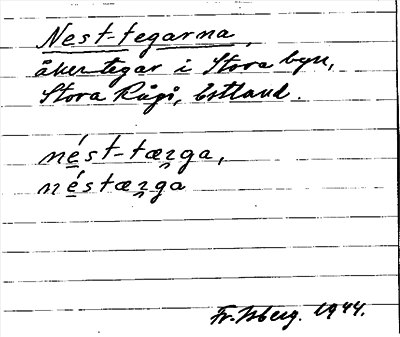 Nest-tegarna,
åkertegar i Stora byn,
Stora Rågö, Estland.
nést-tæꝛga,
néstæꝛga
Fr. Isberg. 1944.